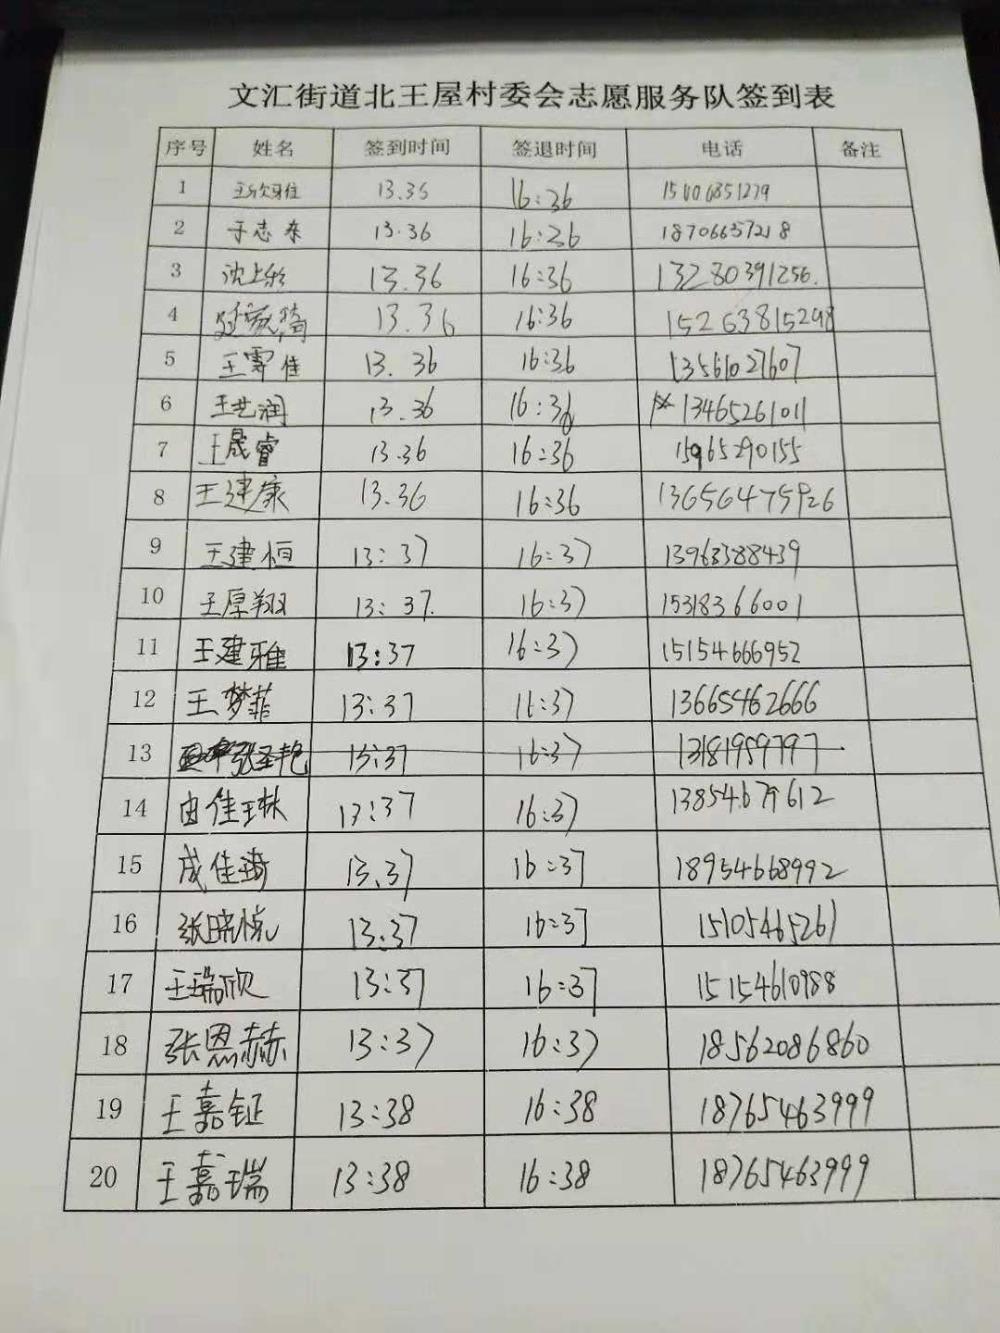 文汇街道北王屋村委会志愿服务队签到表
序号 姓名 签到时间 签退时间 电话 备注
1 13.35 16:36
2 于志东 13.36 16:36 18706657218
3 沈上彩 13.36 16:36 13280391256.
4 13.36 16:36 15263815298
5 王雪佳 13.36 16:36 13561027607
6 王艺润 13.36 16:36 13465261011
7 王晟睿 13.36 16:36 15965290155
8 王建康 13.36 16:36 13656475926
9 王建恒 13:37 16:37 13963388439
10 王厚翔 13:37. 16:37 15318366001
11 王建雅 13:37 16:37 15154666952
12 王梦菲 13:37 16:37 13665462666
13 张圣艳 13:37 16:37 13181959797
14 由佳琳 13:37 16:37 13854679612
15 成佳琦 13.37 16:37 18954668992
16 张晓悦 13:37 16:37 15105465261
17 王瑞欣 13:37 16:37 15154610988
18 张恩赫 13:37 16:37 18562086860
19 王嘉钲 13:38 16:38 18765463999
20 王嘉瑞 13:38 16:38 18765463999